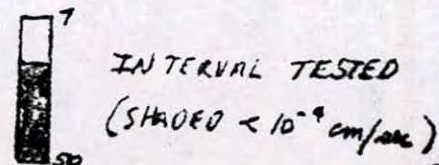 7
INTERVAL TESTED
(SHADED < 10⁻⁴ cm/sec)
50